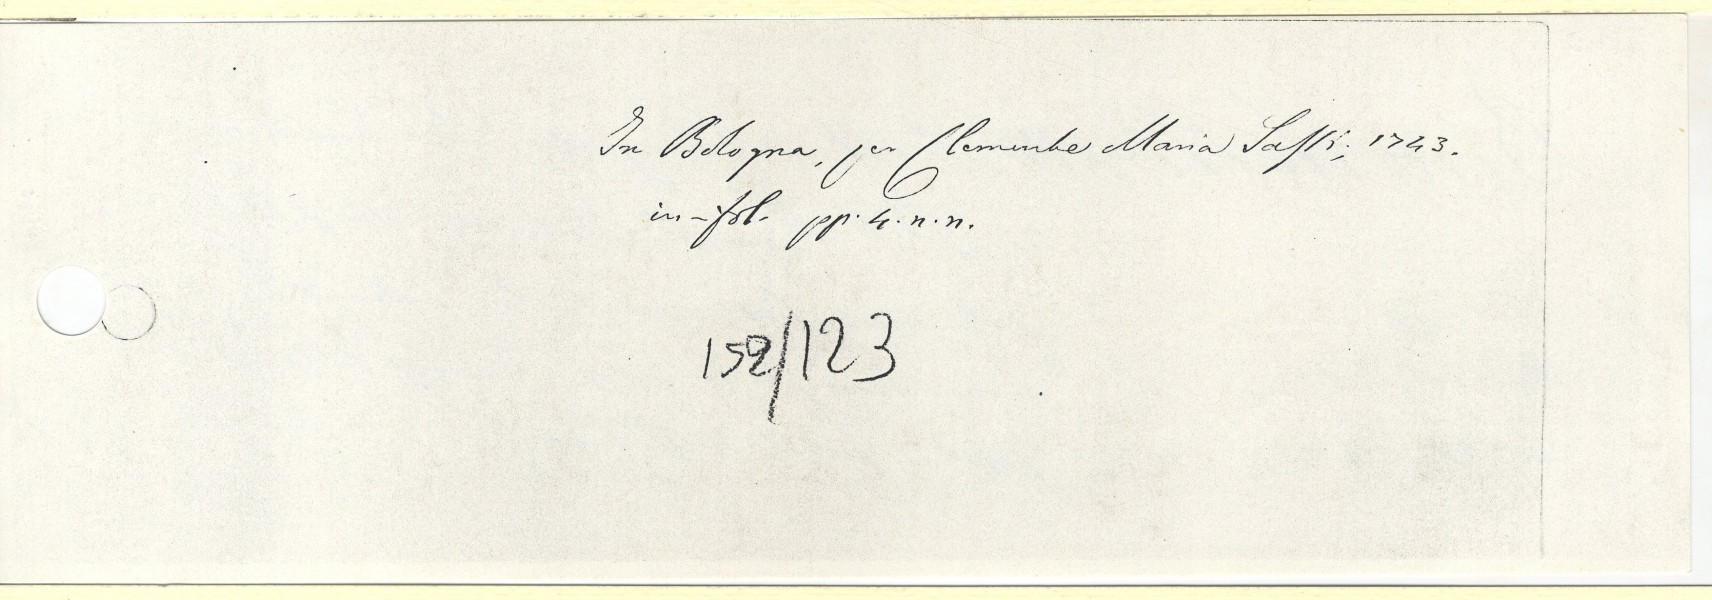 In Bologna, per Clemente Maria Sassi; 1743.
in-fol. pp. 4. n. n.
152/123